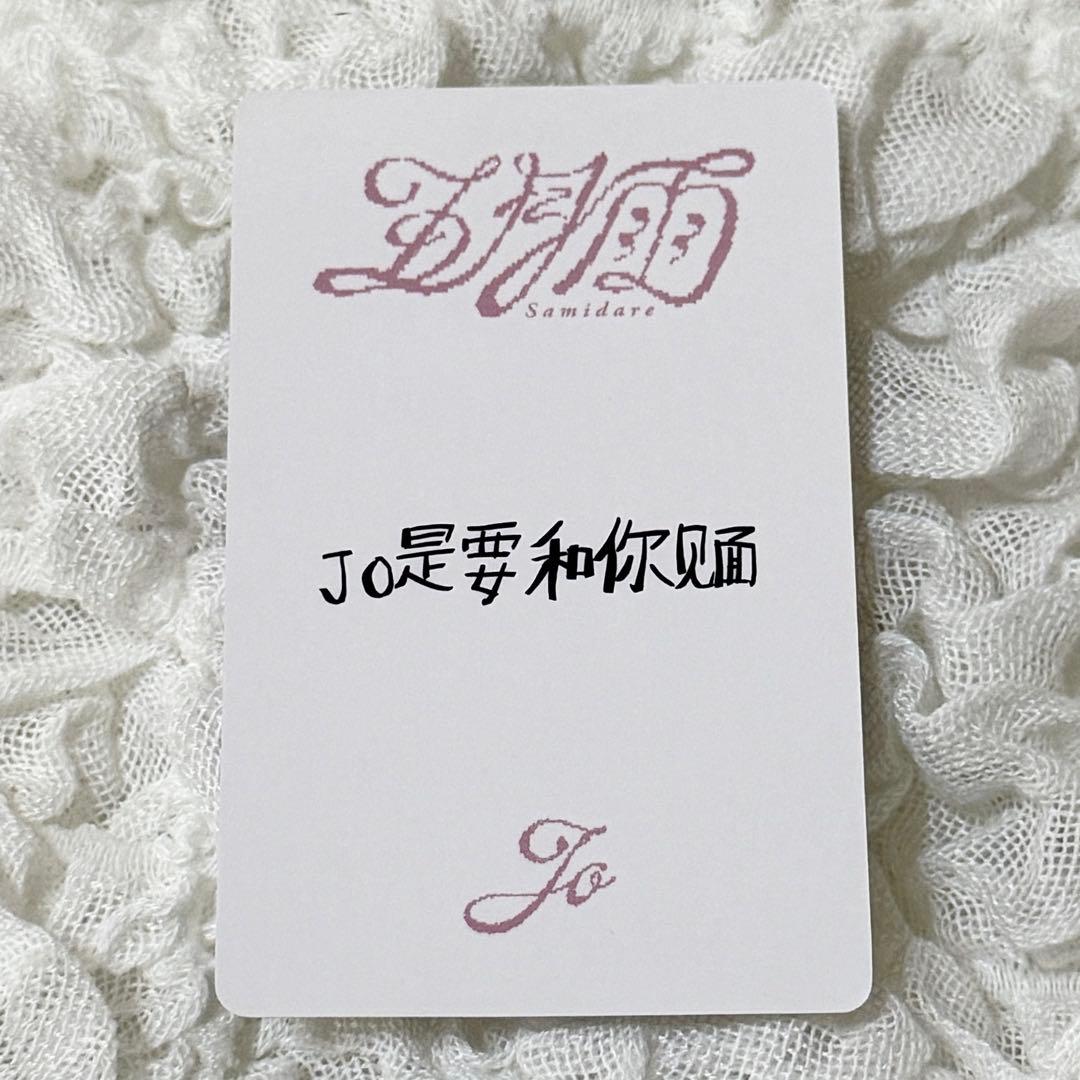 五月雨
Samidare
Jo是要和你见面
Jo